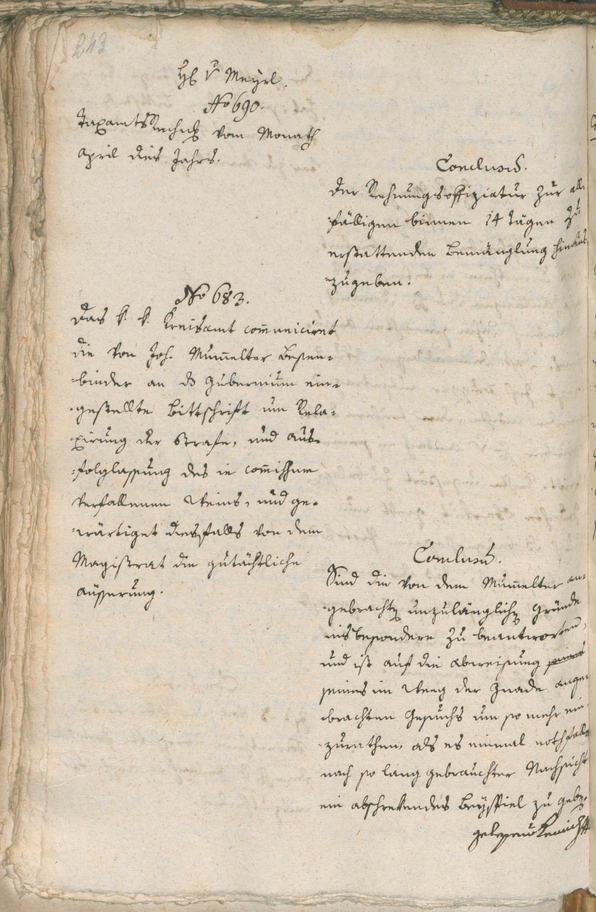 243
H v Meyrl.
No 690.
Taxamts Rechnung vom Monath
April dies Jahrs.
Conclusum.
Der Rechnungsoffiziatur zur all
fälligen binnen 14 Tägen zu
erstattenden Bemänglung hinaus
zugeben.
No 683.
Das k. k. Kreisamt communiciret
die von Joh. Mumelter Besen-
binder an das Gubernium ein-
gestellte Bittschrift um Rela-
xirung der Strafe, und aus-
folglassung des in commissum
verfallenen Weins, und ge-
wärtiget diesfalls von dem
Magistrat die gutächtliche
äusserung.
Conclusum.
Sind die von dem Mumelter an-
gebrachte unzulängliche Gründe
insbesondere zu beantworten,
und ist auf die abweisung
seines im Weeg der Gnade ange
brachten Gesuchs um so mehr ein
zurathen, als es einmal nothfalls
nach so lang gebrauchter Nachsicht
ein abschrekendes Beyspiel zu geben